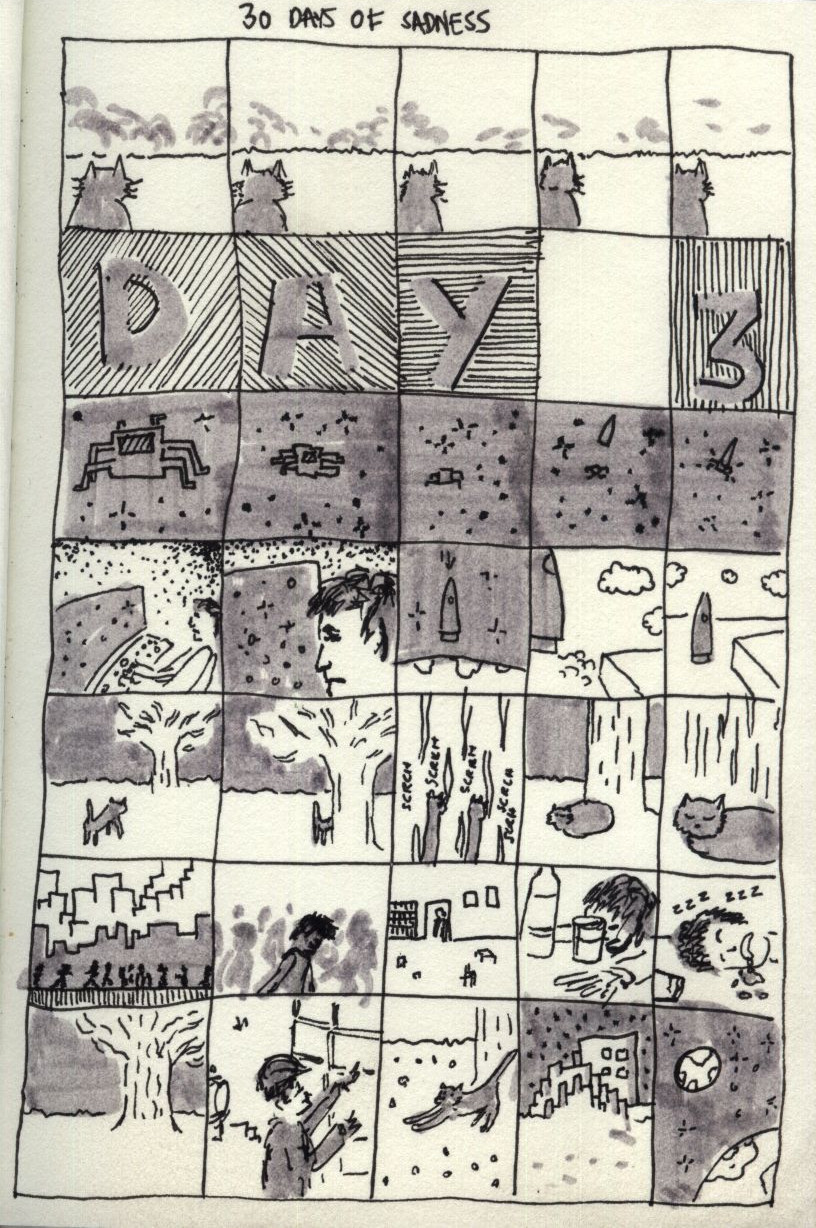 30 DAYS OF SADNESS
DAY 3
SCRCH
SCRCH
SCRCH
SCRCH
SCRCH
ZZZ ZZZ